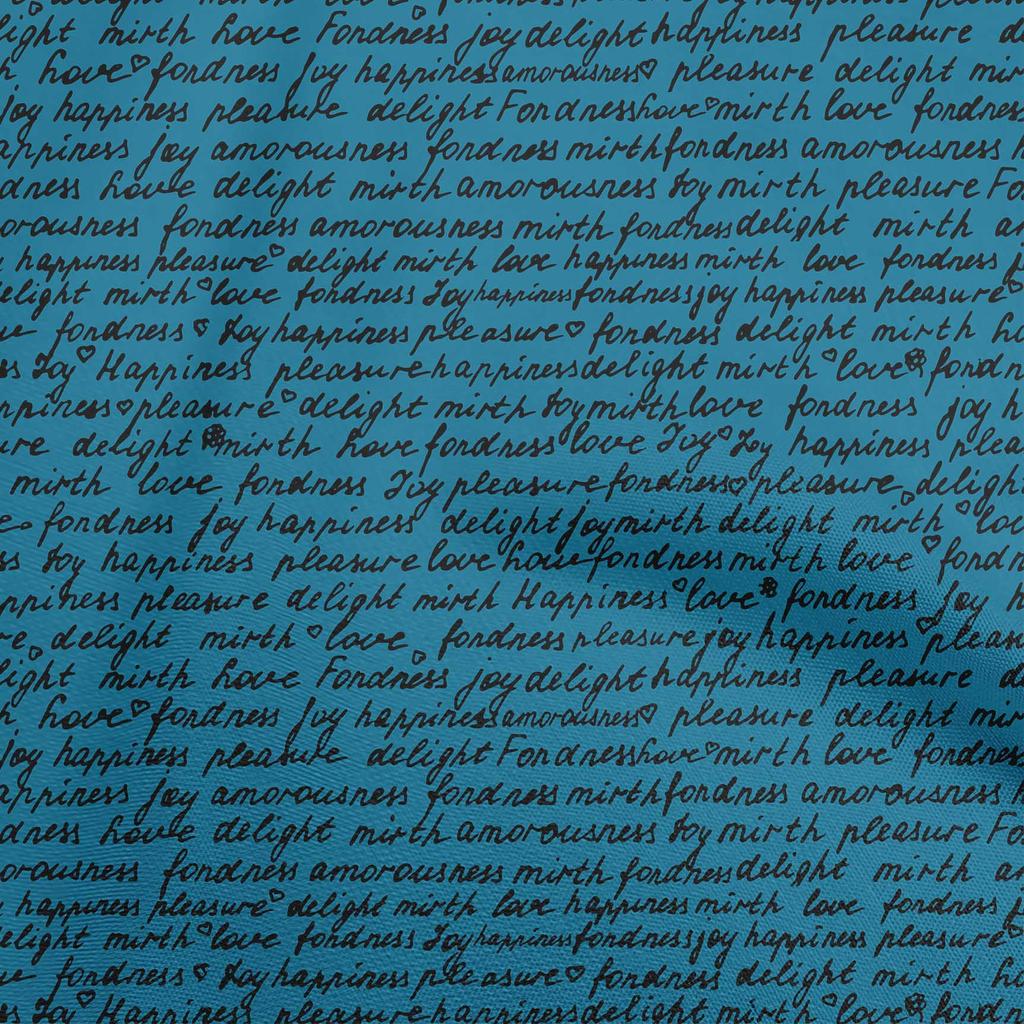 light mirth Love Fondness joy delight happiness pleasure
Love fondness Joy happiness amorousness pleasure delight mir
joy happiness pleasure delight Fondness Love mirth love fondness
appiness joy amorousness fondness mirth fondness amorousness h
dness Love delight mirth amorousness Joy mirth pleasure Fo
orousness fondness amorousness mirth fondness delight mirth am
happiness pleasure delight mirth love happiness mirth love fondness j
elight mirth love fondness Joy happiness fondness joy happiness pleasure
fondness Joy happiness pleasure fondness delight mirth Lo
ss Joy Happiness pleasure happiness delight mirth love fondn
ppiness pleasure delight mirth Joy mirth love fondness joy h
ure delight mirth Love fondness love Joy Joy happiness plea
mirth love fondness Joy pleasure fondness pleasure delight
e fondness joy happiness delight joy mirth delight mirth lov
ss Joy happiness pleasure love Love fondness mirth love fond
ppiness pleasure delight mirth Happiness love fondness Joy h
re delight mirth love fondness pleasure joy happiness pleasu
light mirth Love Fondness joy delight happiness pleasure de
h Love fondness Joy happiness amorousness pleasure delight mir
joy happiness pleasure delight Fondness Love mirth love fondness
appiness joy amorousness fondness mirth fondness amorousness h
dness Love delight mirth amorousness Joy mirth pleasure Fo
orousness fondness amorousness mirth fondness delight mirth am
happiness pleasure delight mirth love happiness mirth love fondness j
elight mirth love fondness Joy happiness fondness joy happiness pleasure
fondness Joy happiness pleasure fondness delight mirth Lo
ss Joy Happiness pleasure happiness delight mirth love fondn